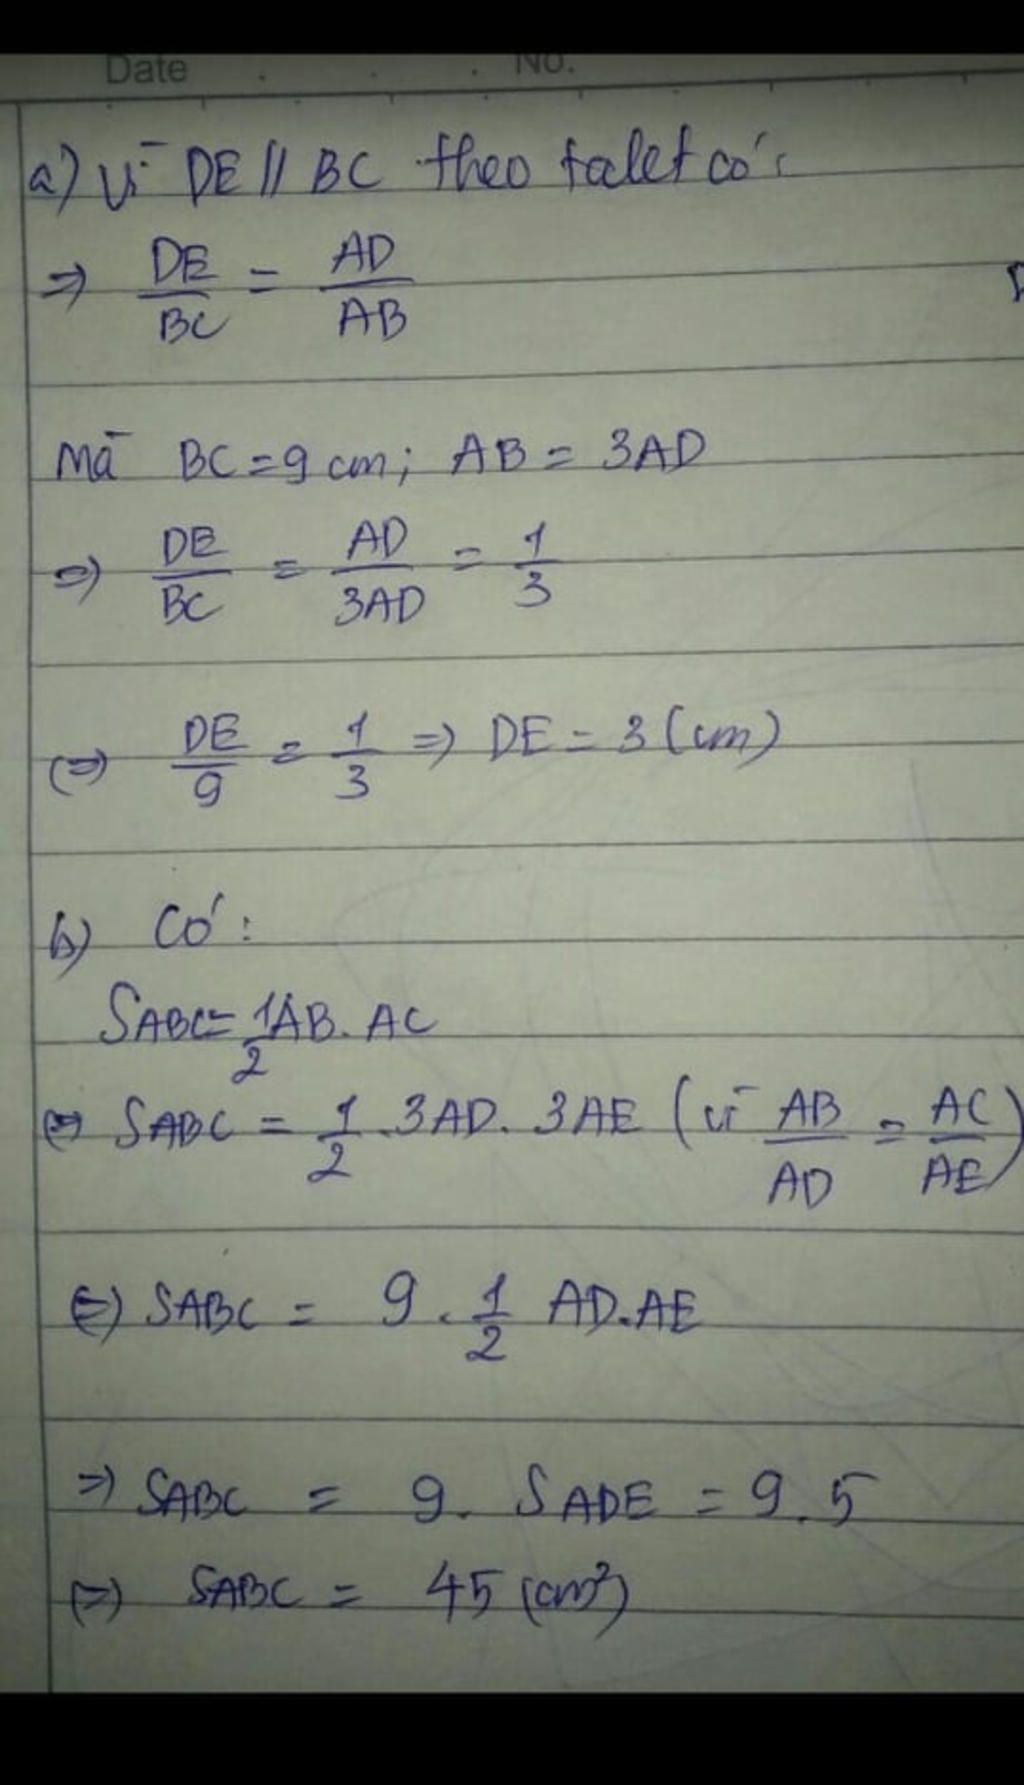 Date No.
a) Vì DE // BC theo talet có:
=> DE/BC = AD/AB
Mà BC = 9 cm; AB = 3AD
=> DE/BC = AD/3AD = 1/3
(=>) DE/9 = 1/3 => DE = 3 (cm)
b) Có:
SABC = 1/2 AB. AC
<=> SABC = 1/2 . 3AD. 3AE (vì AB/AD = AC/AE)
<=> SABC = 9 . 1/2 AD.AE
=> SABC = 9. SADE = 9.5
(=>) SABC = 45 (cm²)